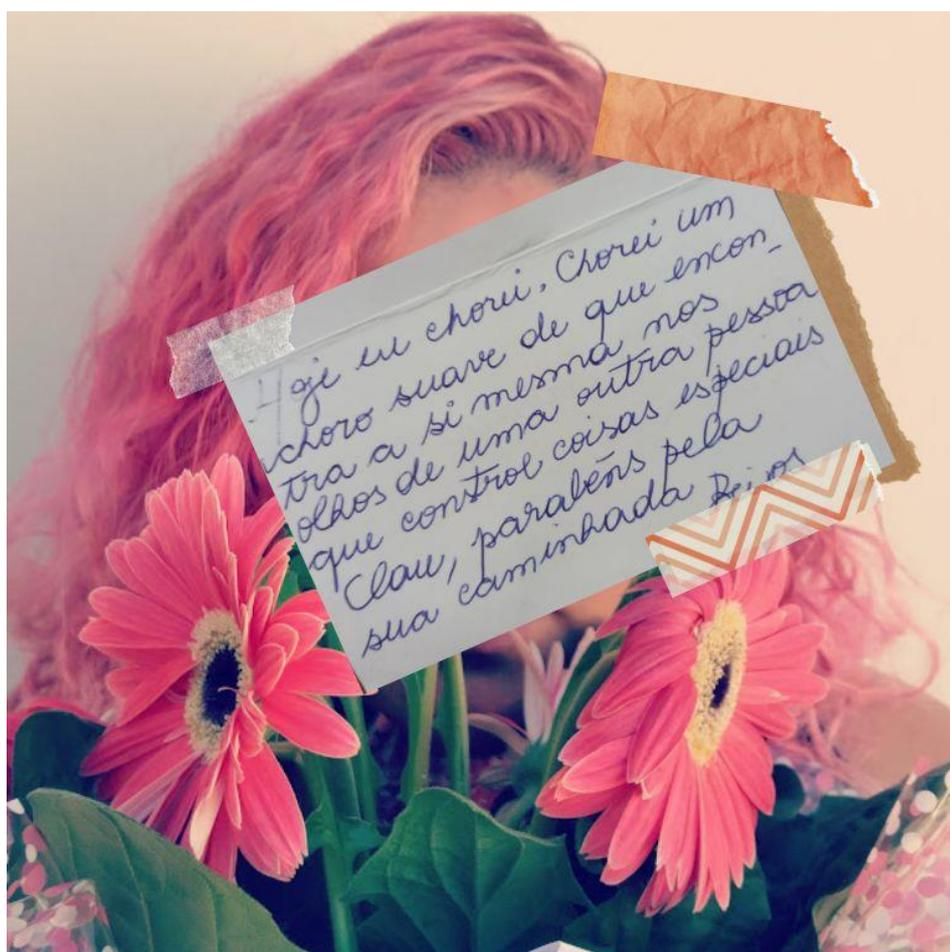 Hoje eu chorei. Chorei um
choro suave de que encon-
tra a si mesma nos
olhos de uma outra pessoa
que control coisas especiais
Clau, parabéns pela
sua caminhada Beijos